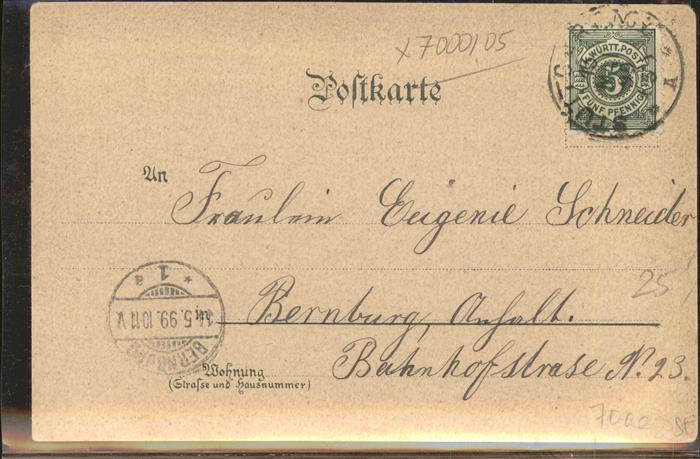 x 7000,05
K. WÜRTT. POST
5
FÜNF PFENNIG
Postkarte
An
Fräulein Eugenie Schneider
25
Bernburg, Anhalt.
* 1 a
14.5.99.10-11 V
BERNBURG
Bahnhofstrase No. 23.
Wohnung
(Strasse und Hausnummer)